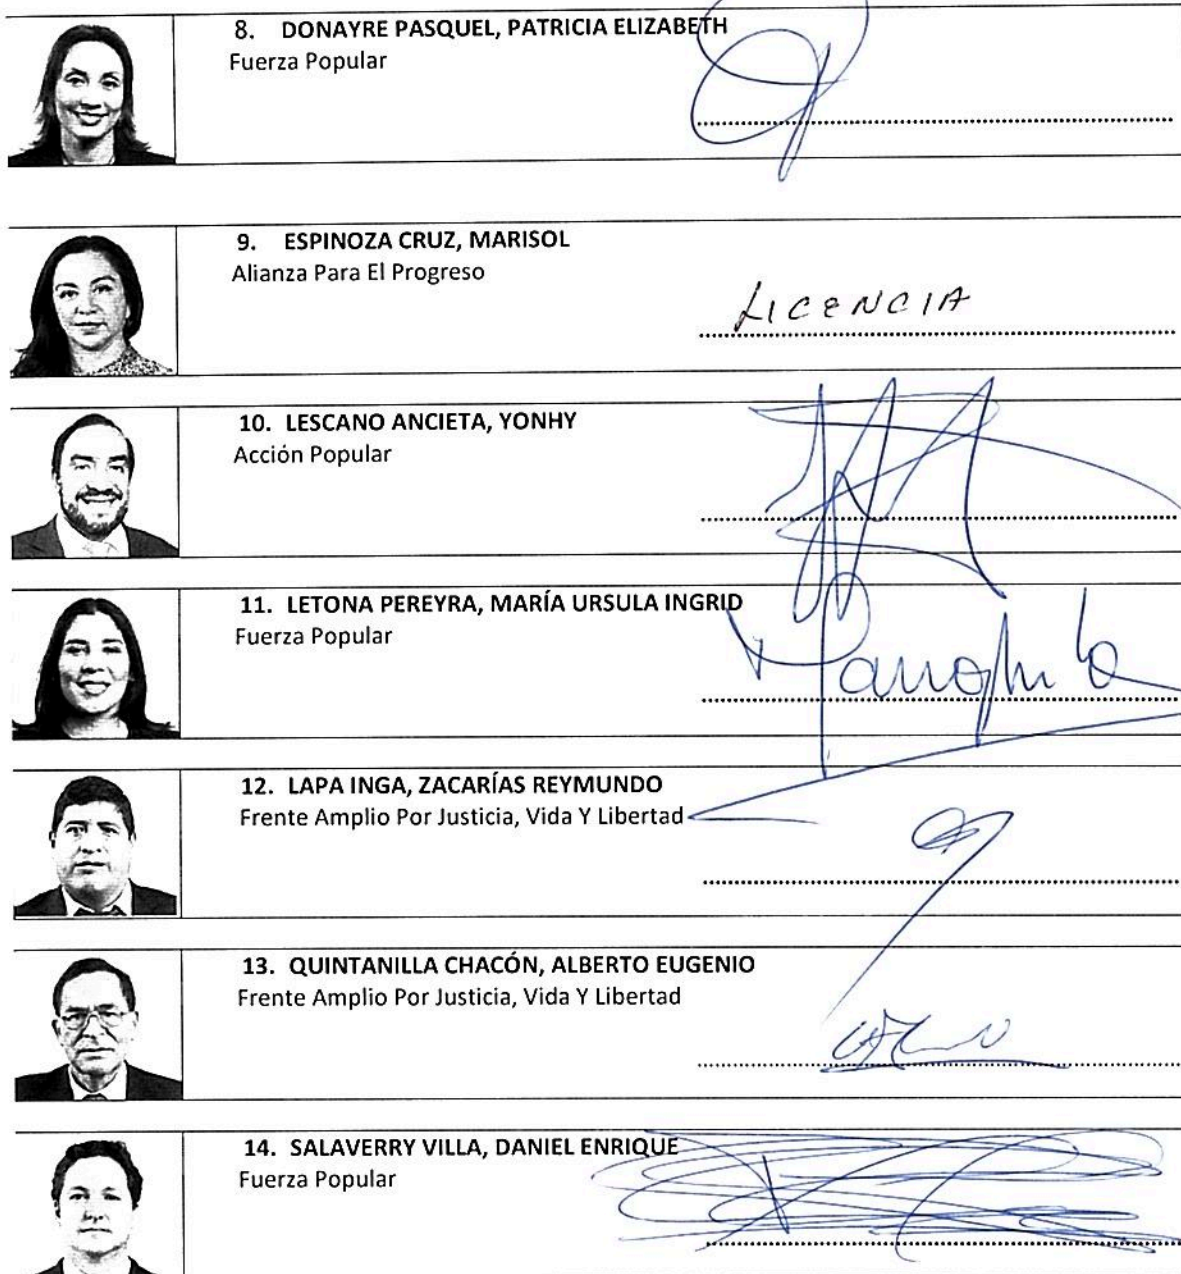 8. DONAYRE PASQUEL, PATRICIA ELIZABETH
Fuerza Popular
9. ESPINOZA CRUZ, MARISOL
Alianza Para El Progreso
LICENCIA
10. LESCANO ANCIETA, YONHY
Acción Popular
11. LETONA PEREYRA, MARÍA URSULA INGRID
Fuerza Popular
12. LAPA INGA, ZACARÍAS REYMUNDO
Frente Amplio Por Justicia, Vida Y Libertad
13. QUINTANILLA CHACÓN, ALBERTO EUGENIO
Frente Amplio Por Justicia, Vida Y Libertad
14. SALAVERRY VILLA, DANIEL ENRIQUE
Fuerza Popular